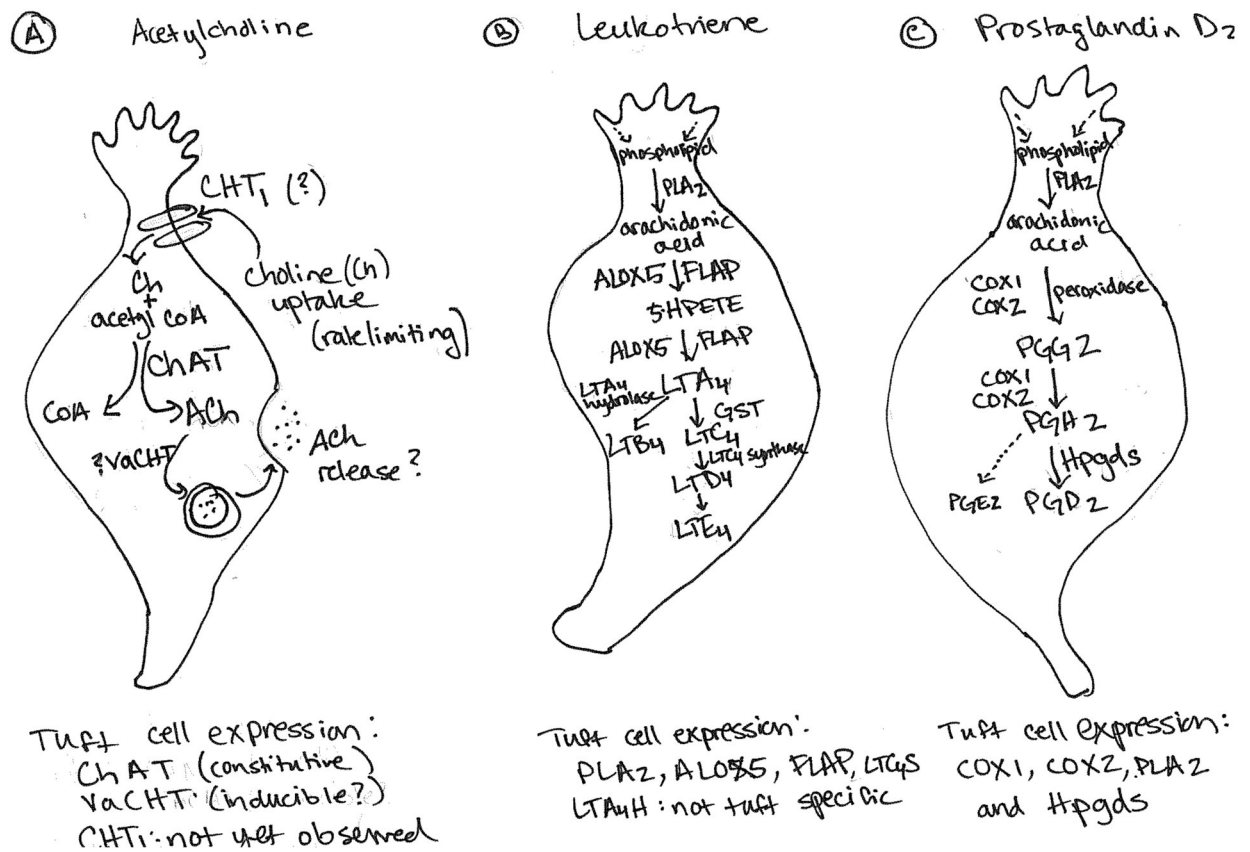 A Acetylcholine
CHT1 (?)
choline (Ch)
uptake
(rate limiting)
Ch
+
acetyl CoA
ChAT
CoA
ACh
?VaCHT
ACh
release?
Tuft cell expression:
ChAT (constitutive)
VaCHT (inducible?)
CHT1: not yet observed
B Leukotriene
phospholipid
PLA2
arachidonic
acid
ALOX5 FLAP
5HPETE
ALOX5 FLAP
LTA4
hydrolase
LTA4
GST
LTB4 LTC4
LTC4 synthase
LTD4
LTE4
Tuft cell expression:
PLA2, ALOX5, FLAP, LTC4S
LTA4H: not tuft specific
C Prostaglandin D2
phospholipid
PLA2
arachidonic
acid
COX1
COX2
peroxidase
PGG2
COX1
COX2
PGH2
Hpgds
PGE2 PGD2
Tuft cell expression:
COX1, COX2, PLA2
and Hpgds